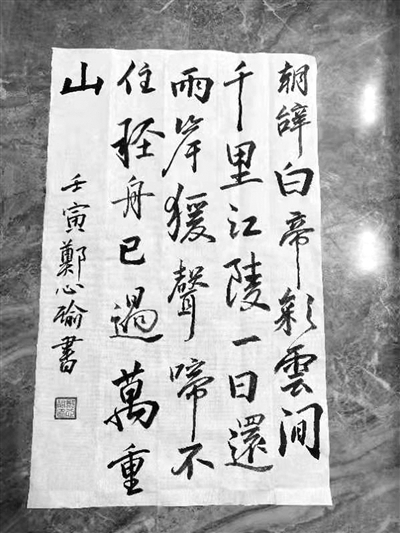 朝辭白帝彩雲間
千里江陵一日還
兩岸猨聲啼不
住輕舟已過萬重
山
壬寅鄭心瑜書